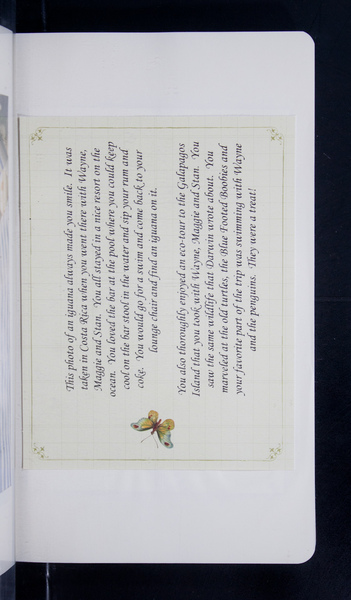 This photo of an iguana always made you smile. It was
taken in Costa Rica when you went there with Wayne,
Maggie and Stan. You all stayed in a nice resort on the
ocean. You loved the bar at the pool where you could keep
cool on the bar stool in the water and sip your rum and
coke. You would go for a swim and come back to your
lounge chair and find an iguana on it.
You also thoroughly enjoyed an eco-tour to the Galapagos
Island that you took with Wayne, Maggie and Stan. You
saw the same wildlife that Darwin wrote about. You
marveled at the old turtles, the Blue Footed Boobies and
your favorite part of the trip was swimming with Wayne
and the penguins. They were a treat!